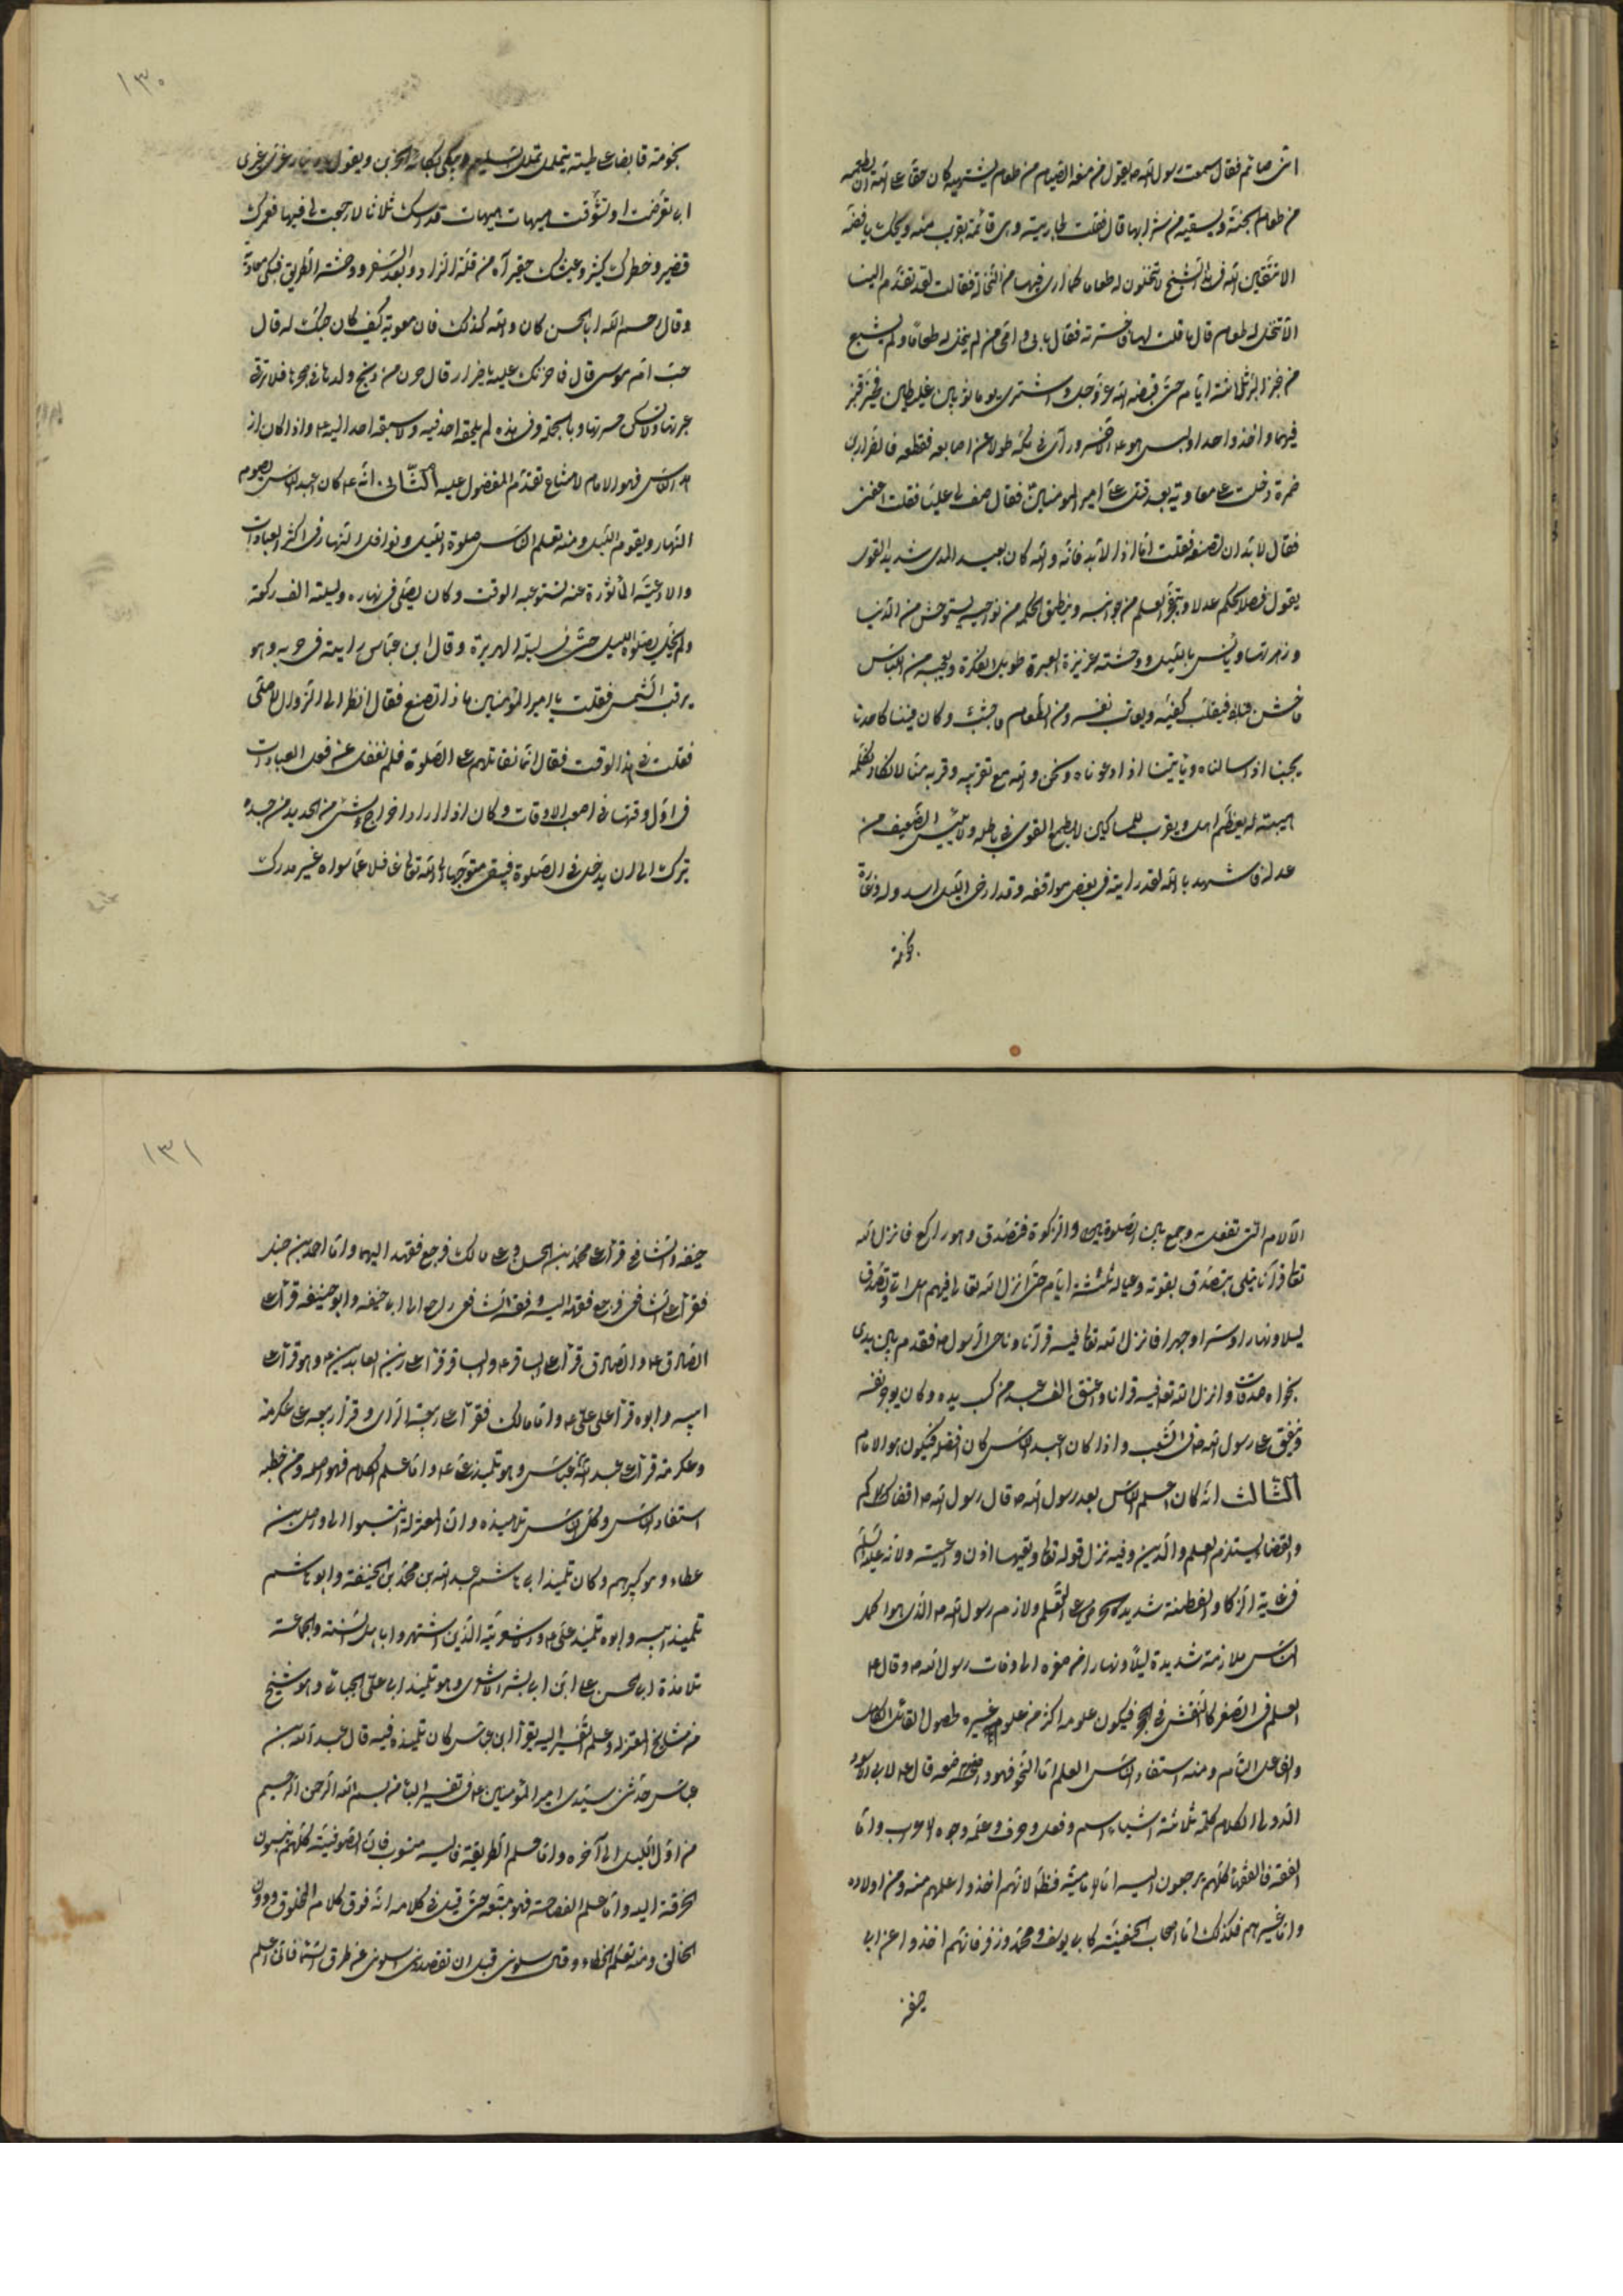 انی صائم فقال سمعت رسول الله ص یقول من منعه الصیام من طعام یشتهیه کان حقا علی الله ان یطعمه
من طعام الجنة و یسقیه من شرابها قال فقلت لجاریته و هی قائمة بقرب منه ویحک یا فضة
الا تتقین الله فی هذا الشیخ الا تنخلون له طعاما مما اری فیها من النخالة فقالت لقد تقدم الینا
الا ننخل له طعام قال ما قلت لها فاخبرته فقال بابی و امی من لم ینخل له طعام و لم یشبع
من خبز البر ثلاثة ایام حتی قبضه الله عز و جل و اشتری یوما ثوبین غلیظین فخیر قنبر
فیهما و اخذ واحدا و لبس هو ع الاخر و رای فی کمه طولا عن اصابعه فقطعه قال ضرار بن
ضمرة دخلت علی معاویة بعد قتل علی امیر المومنین فقال صف لی علیا فقلت اعفنی
فقال لا بد ان تصفه فقلت اما اذا لا بد فانه و الله کان بعید المدی شدید القوی
یقول فصلا یحکم عدلا و یتفجر العلم من جوانبه و ینطق الحکمة من نواحیه یستوحش من الدنیا
و زهرتها و یانس باللیل و وحشته غزیزة العبرة طویل الفکرة و یعجبه من اللباس
ما خشن یقلب کفیه و یعاتب نفسه و من الطعام ما جشب و کان فینا کاحدنا
یجیبنا اذا سالناه و یاتینا اذا دعوناه و نحن و الله مع تقریبه و قربه منا لا نکاد نکلمه
هیبته له یعظم اهل و یقرب المساکین لا یطمع القوی فی باطله و لا ییئس الضعیف من
عدله فاشهد بالله لقد رایته فی بعض مواقفه و قد ارخی اللیل سدوله و غارت
نجومه
۱۳۰
نجومه قابضا علی لحیته یتململ تململ السلیم و یبکی بکاء الحزین و یقول یا دنیا غری غیری
ابی تعرضت او تشوقت هیهات هیهات قد ابنتک ثلاثا لا رجعت لی فیها فعمرک
قصیر و خطرک کثیر و عیشک حقیر آه من قلة الزاد و بعد السفر و وحشة الطریق فبکی معاویة
و قال رحم الله ابا الحسن کان و الله کذلک قال معویة کیف کان حبک له قال
حب ام موسی قال فما حزنک علیه یا ضرار قال حزن من ذبح ولدها فی حجرها فلا ترقی
عبرتها و لا یسکن حسرتها و بالجملة و فی هذه لم یلحقه احد فیه و لا سبقه احد الیه ع و اذا کان از
هد الناس فهو الامام لامتناع تقدم المفضول علیه الثانی انه ع کان اعبد الناس یصوم
النهار و یقوم اللیل و منه تعلم الناس صلوة اللیل و نوافل النهار فی اکثر العبادات
و الادعیة الماثورة عنه تستوعب الوقت و کان یصلی فی نهاره و لیلته الف رکعة
و لم یخل بصلوة اللیل حتی فی لیلة الهریرة و قال ابن عباس رایته فی حربه و هو
یرقب الشمس فقلت یا امیر المؤمنین ما ذا تصنع فقال انظر الی الزوال لاصلی
فقلت فی هذا الوقت فقال انما نقاتلهم علی الصلوة فلم نغفل عنه فعل العبادات
فی اول وقتها فی اصعب الاوقات و کان اذا اراد اخراج شئ من الحدید من جسده
ترک الی ان یدخل فی الصلوة فیبقی متوجها الی الله تعالی غافلا عما سواه غیر مدرک
الآلام التی تفعل به و جمع بین الصلوة و الزکوة فتصدق و هو راکع فانزل الله
تعالی قرآنا یتلی بتصدق بقوته و عیاله ثلثة ایام حتی انزل الله تعالی فیهم هل اتی و تصدق
لیلا و نهارا و سرا و جهرا فانزل الله تعالی فیه قرآنا و ناجی الرسول ص فقدم بین یدی
نجواه صدقات و انزل الله تعالی فیه قرانا و اعتق الف عبد من کسب یده و کان یوجر نفسه
و ینفق علی رسول الله ص فی الشعب و اذا کان اعبد الناس کان افضل فیکون هو الامام
الثالث انه کان اعلم الناس بعد رسول الله ص قال رسول الله ص اقضاکم علی
و القضا یستلزم العلم و الدین و فیه نزل قوله تعالی و تعیها اذن واعیة و لانه علیه السلام
فی غایة الذکا و الفطنة شدید الحرص علی التعلم و لازم رسول الله ص الذی هو اکمل
الناس ملازمة شدیدة لیلا و نهارا من صغره الی وفات رسول الله ص و قال ع
العلم فی الصغر کالنقش فی الحجر فیکون علومه اکثر من علوم غیره لحصول القابل الکامل
و الفاعل التام و منه استفاد الناس العلم اما النحو فهو واضعه قال ع لابی الاسود
الدولی الکلام کله ثلاثة اشیاء اسم و فعل و حرف و علمه وجوه الاعراب و اما
الفقه فالفقهاء کلهم یرجعون الیه اما الامامیة فظ لانهم اخذوا علمهم منه و من اولاده
و اما غیرهم فکذلک اما اصحاب الحنفیة کابی یوسف و محمد و زفر فانهم اخذوا عن ابی
حنیفة
۱۳۱
حنیفة و الشافعی قرا علی محمد بن الحسن و علی مالک فرجع فقهه الیهما و اما احمد بن حنبل
فقرا علی الشافعی فرجع فقهه الیه و فقه الشافعی راجع الی ابی حنیفه و ابو حنیفه قرا علی
الصادق ع و الصادق قرا علی الباقر ع و الباقر قرا علی زین العابدین ع و هو قرا علی
ابیه و ابوه قرا علی علی ع و اما مالک فقرا علی ربیعة الرای و قرا ربیعه علی عکرمة
و عکرمة قرا علی عبد الله عباس و هو تلمیذ علی ع و اما علم الکلام فهو اصله و من خطبه
استفاد الناس و کل الناس تلامیذه و ان المعتزلة انتسبوا الی واصل بن
عطاء و هو کبیرهم و کان تلمیذ ابی هاشم عبد الله بن محمد بن الحنیفة و ابو هاشم
تلمیذ ابیه و ابوه تلمیذ علی ع و الاشعریة الذین اشتهروا باهل السنة و الجماعة
تلامذة ابی الحسن علی ابن ابی بشر الاشعری و هو تلمیذ ابی علی الجبائی و هو شیخ
من مشایخ المعتزلة و علم التفسیر الیه یعزا ابن عباس کان تلمیذه فیه قال عبد الله بن
عباس حدثنی سیدی امیر المؤمنین ع فی تفسیر الباء من بسم الله الرحمن الرحیم
من اول اللیل الی آخره و اما علم الطریقة فالیه منسوب فان الصوفیة کلهم ینسبون
الخرقة الیه و اما علم الفصاحة فهو منبعه حتی قیل فی کلامه انه فوق کلام المخلوق و دون
الخالق و منه تعلم الخطباء و قال سلونی قبل ان تفقدونی سلونی عن طرق السماء فانی اعلم